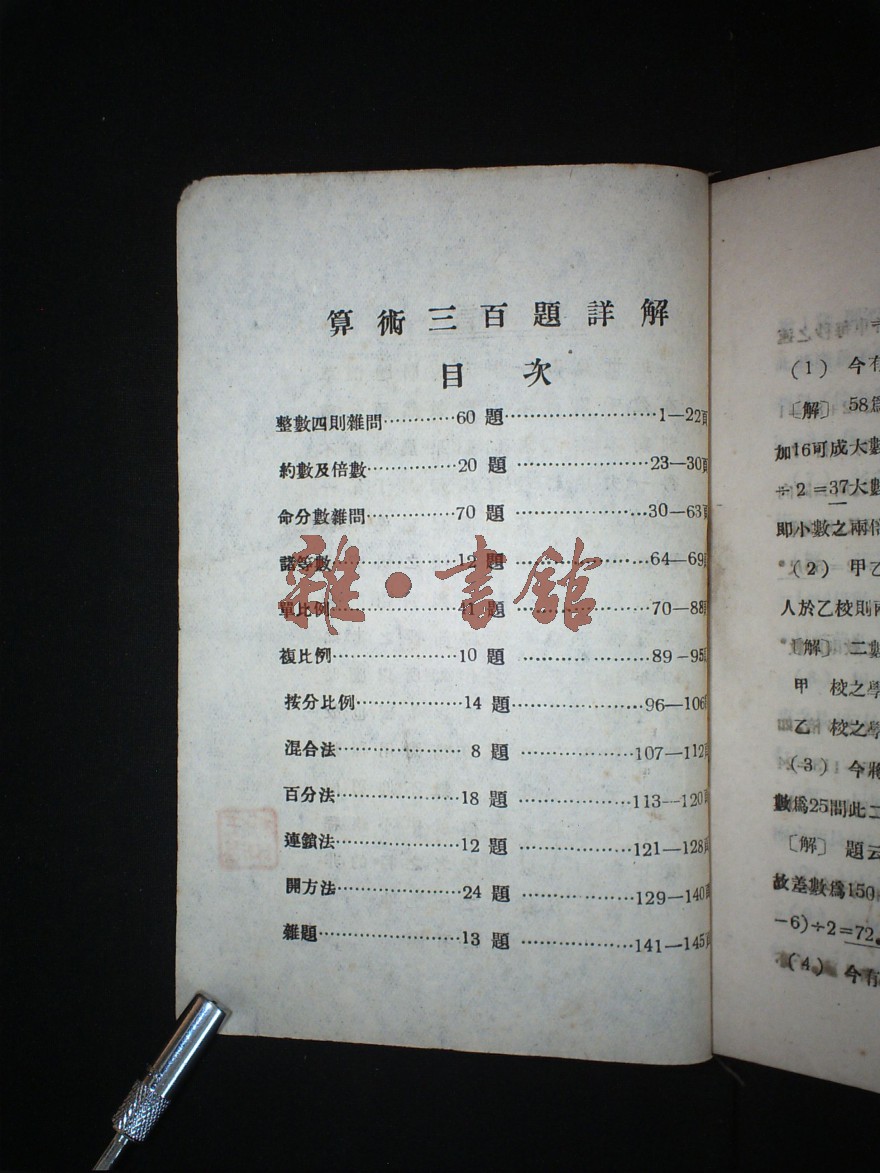 算術三百題詳解
目次
整數四則雜問…………60題……………………1—22頁
約數及倍數…………20題…………………23—30頁
命分數雜問…………70題…………………30—63頁
諸等數……………12題…………………64—69頁
單比例……………41題…………………70—88頁
複比例……………10題…………………89—95頁
按分比例……………14題…………………96—106頁
混合法……………8題………………107—112頁
百分法……………18題………………113—120頁
連鎖法……………12題………………121—128頁
開方法……………24題………………129—140頁
雜題………………13題………………141—145頁
雜·書館
(1) 今有
〔解〕 58爲
加16可成大數
÷2＝37大數
即小數之兩倍
(2) 甲乙
人於乙校則兩
〔解〕 二數
甲 校之學
乙 校之學
(3) 今將
數爲25問此二
〔解〕 題云
故差數爲150
-6)÷2=72.
(4) 今有